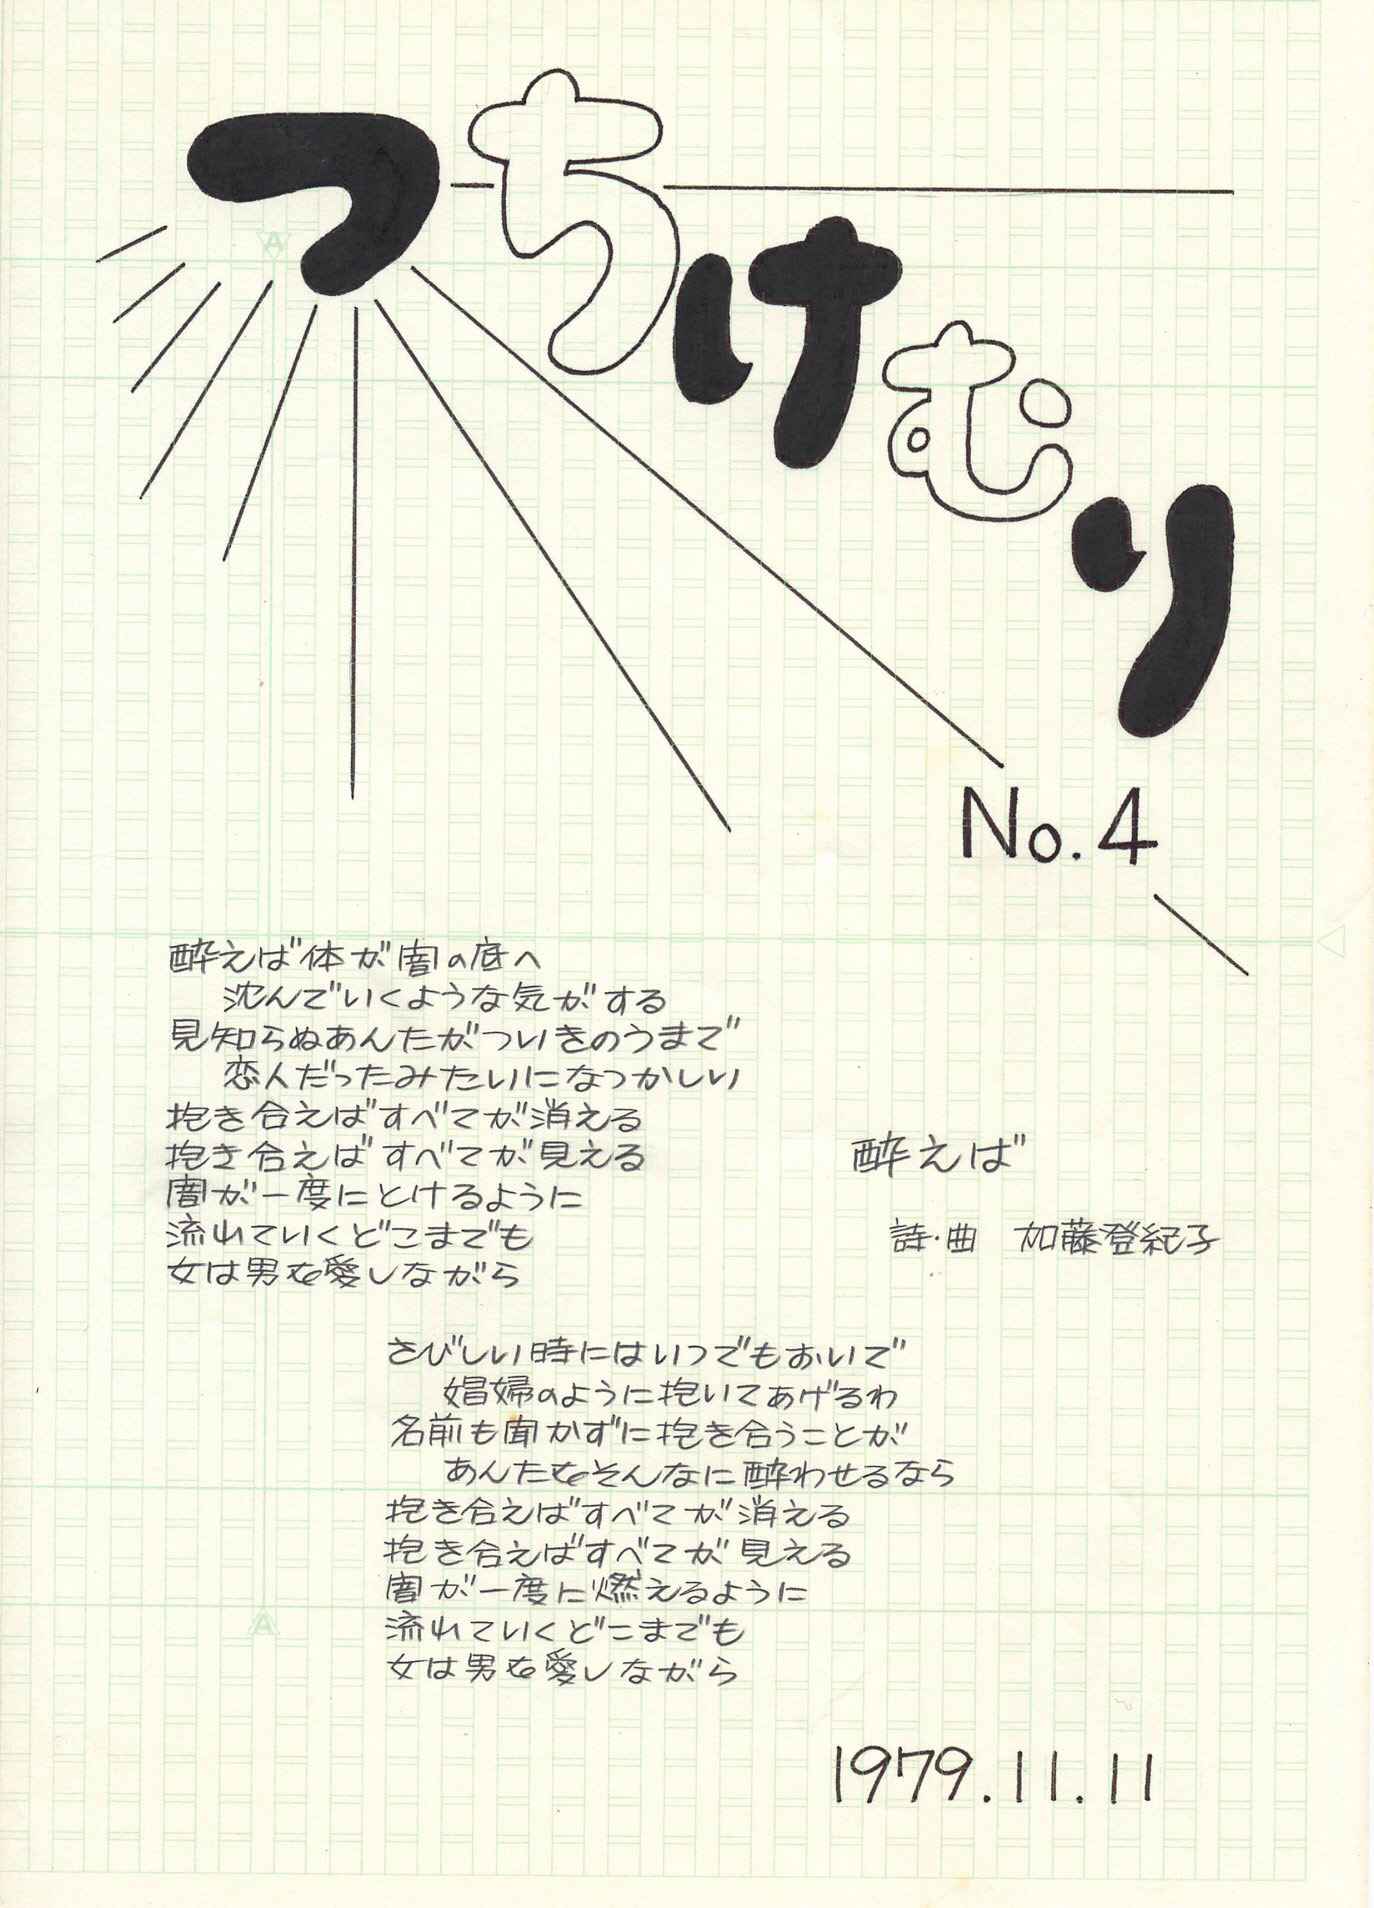 つちけむり
No.4
酔えば体が闇の底へ
沈んでいくような気がする
見知らぬあんたがついきのうまで
恋人だったみたいになつかしい
抱き合えばすべてが消える
抱き合えばすべてが見える
闇が一度にとけるように
流れていくどこまでも
女は男を愛しながら
酔えば
詩・曲 加藤登紀子
さびしい時にはいつでもおいで
娼婦のように抱いてあげるわ
名前も聞かずに抱き合うことが
あんたをそんなに酔わせるなら
抱き合えばすべてが消える
抱き合えばすべてが見える
闇が一度に燃えるように
流れていくどこまでも
女は男を愛しながら
1979.11.11